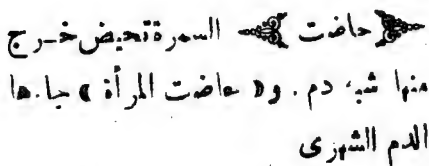 ﴿حاضت﴾ السمرة تحيض خرج
منها شبه دم . و« حاضت المرأة » جاءها
الدم الشهرى